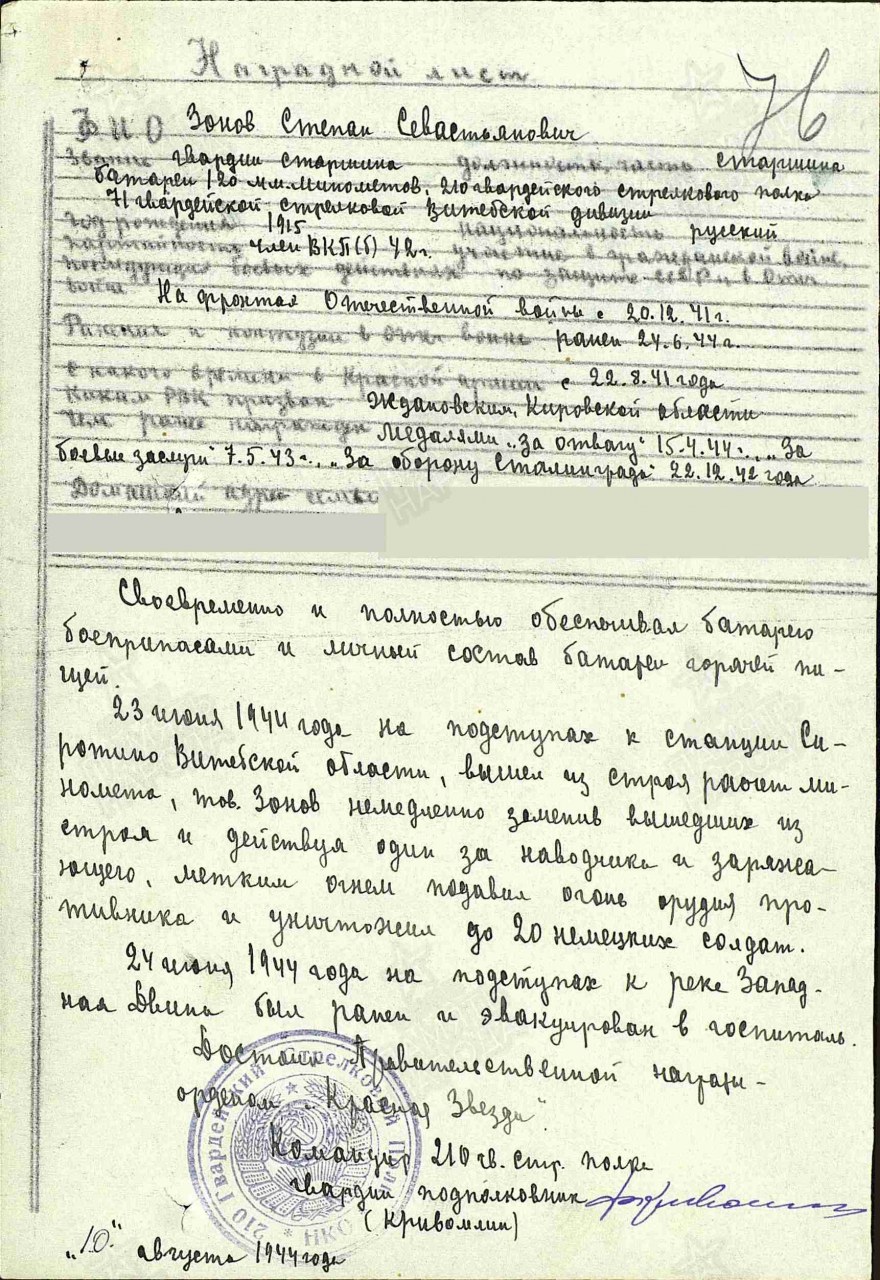 Наградной лист
Ф И О Зонов Степан Севастьянович
Звание гвардии старшина должность, часть старшина
батареи 120 мм. минометов, 210 гвардейского стрелкового полка
71 гвардейской стрелковой Витебской дивизии
Год рождения 1915 национальность русский
партийность член ВКП(б) 42 г. участие в гражданской войне,
последующих боевых действиях по защите СССР и в Отеч.
войне На фронтах Отечественной войны с 20.12.41 г.
Ранения и контузии в Отеч войне ранен 24.6.44 г.
с какого времени в Красной армии с 22.8.41 года
Каким РВК призван Ждановским, Кировской области
Чем ранее награжден Медалями „За отвагу" 15.4.44 г., „За
боевые заслуги" 7.5.43 г., „За оборону Сталинграда" 22.12.42 года
Домашний адрес семьи
Своевременно и полностью обеспечивал батарею
боеприпасами и личный состав батареи горячей пи-
щей.
23 июня 1944 года на подступах к станции Си-
ротино Витебской области, вышел из строя расчет ми-
номета, тов. Зонов немедленно заменив вышедших из
строя и действуя один за наводчика и заряжа-
ющего, метким огнем подавил огонь орудия про-
тивника и уничтожил до 20 немецких солдат.
24 июня 1944 года на подступах к реке Запад-
ная Двина был ранен и эвакуирован в госпиталь.
Достоин Правительственной награды -
орденом „Красная Звезда"
Командир 210 гв. стр. полка
гвардии подполковник
(Кривомлин)
„10" августа 1944 года
210 Гвардейский Стрелковый Полк * НКО *